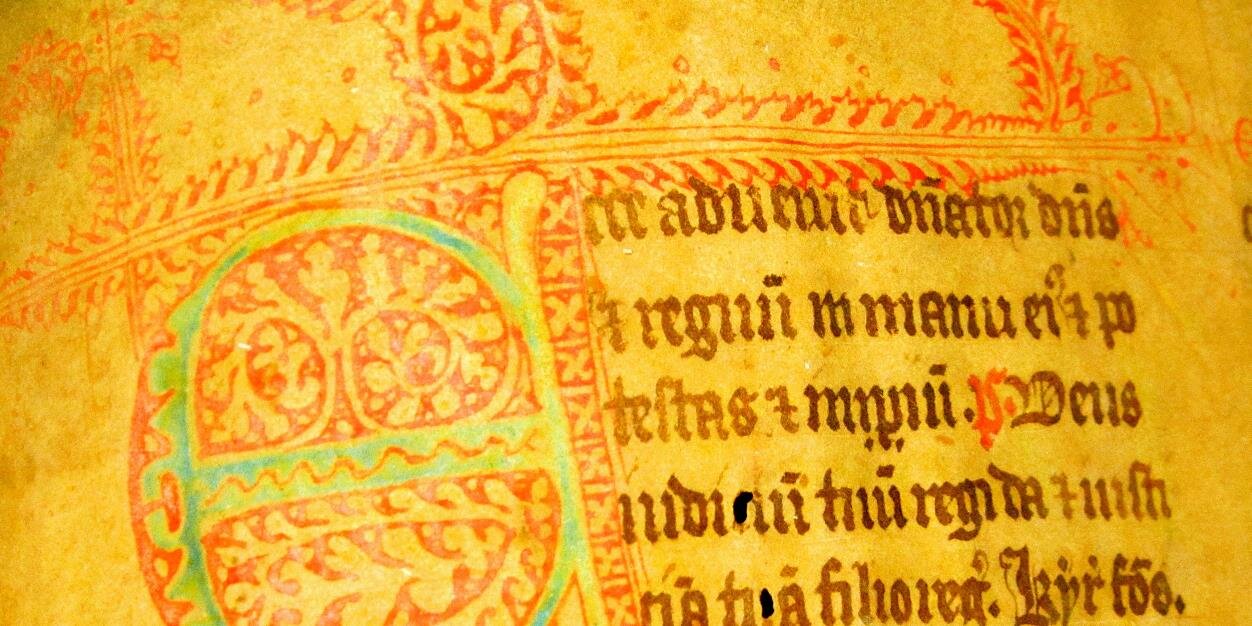 Ecce aduenit dn̄ator dn̄s
& regnū in manu eiꝰ ⁊ po
testas ⁊ impiū. p̄ Deus
iudiciū tuū regi da ⁊ iusti
ciā tuā filio reg̕. kyr̕ fōs.